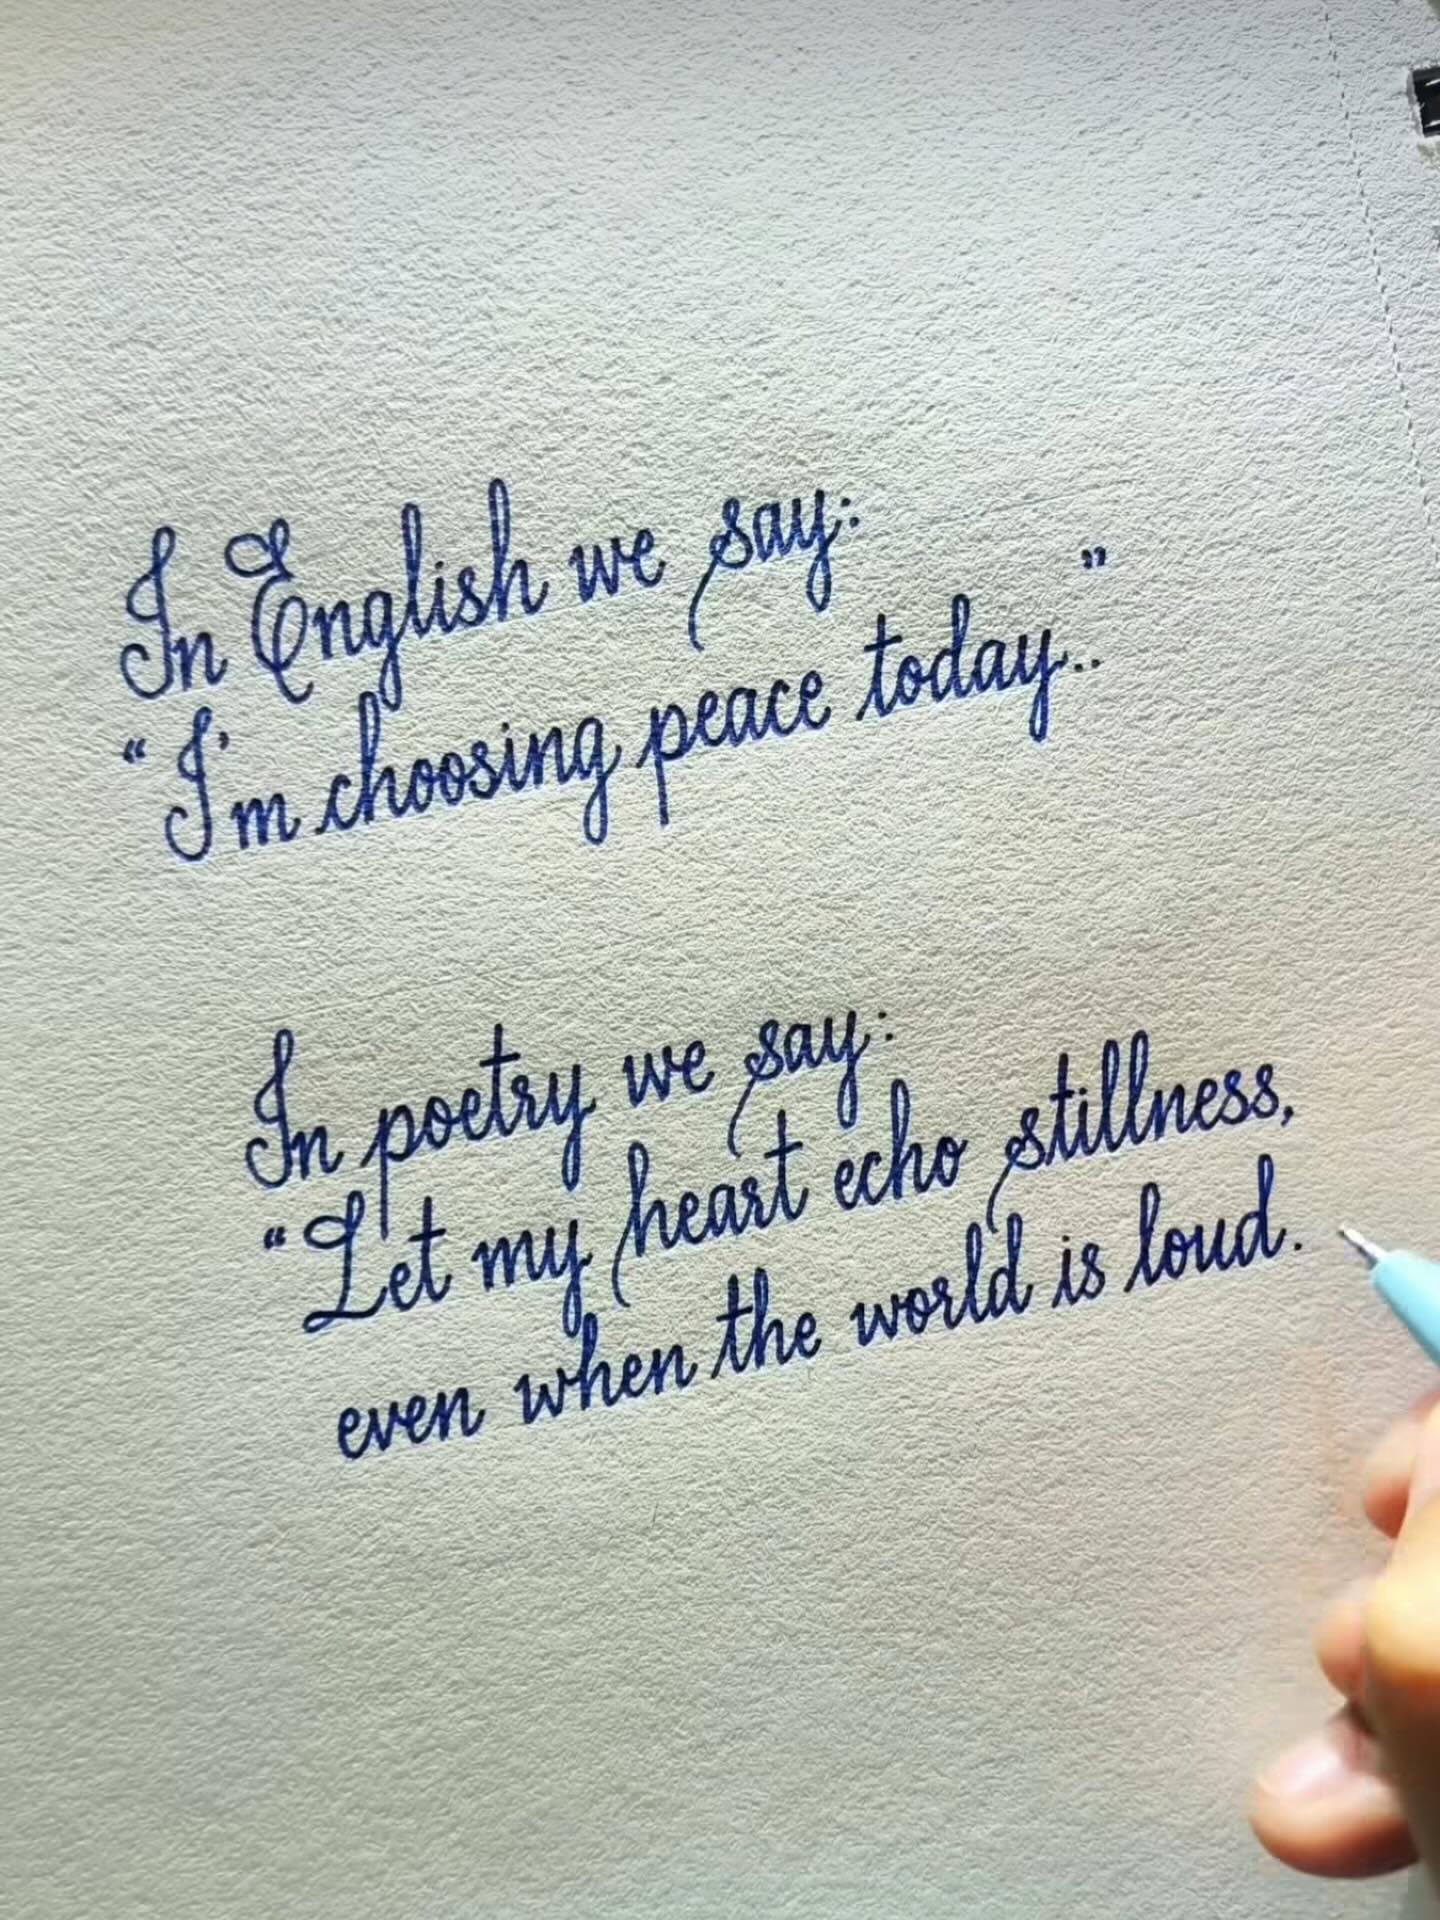 In English we say:
“I'm choosing peace today..”
In poetry we say:
“Let my heart echo stillness,
even when the world is loud.